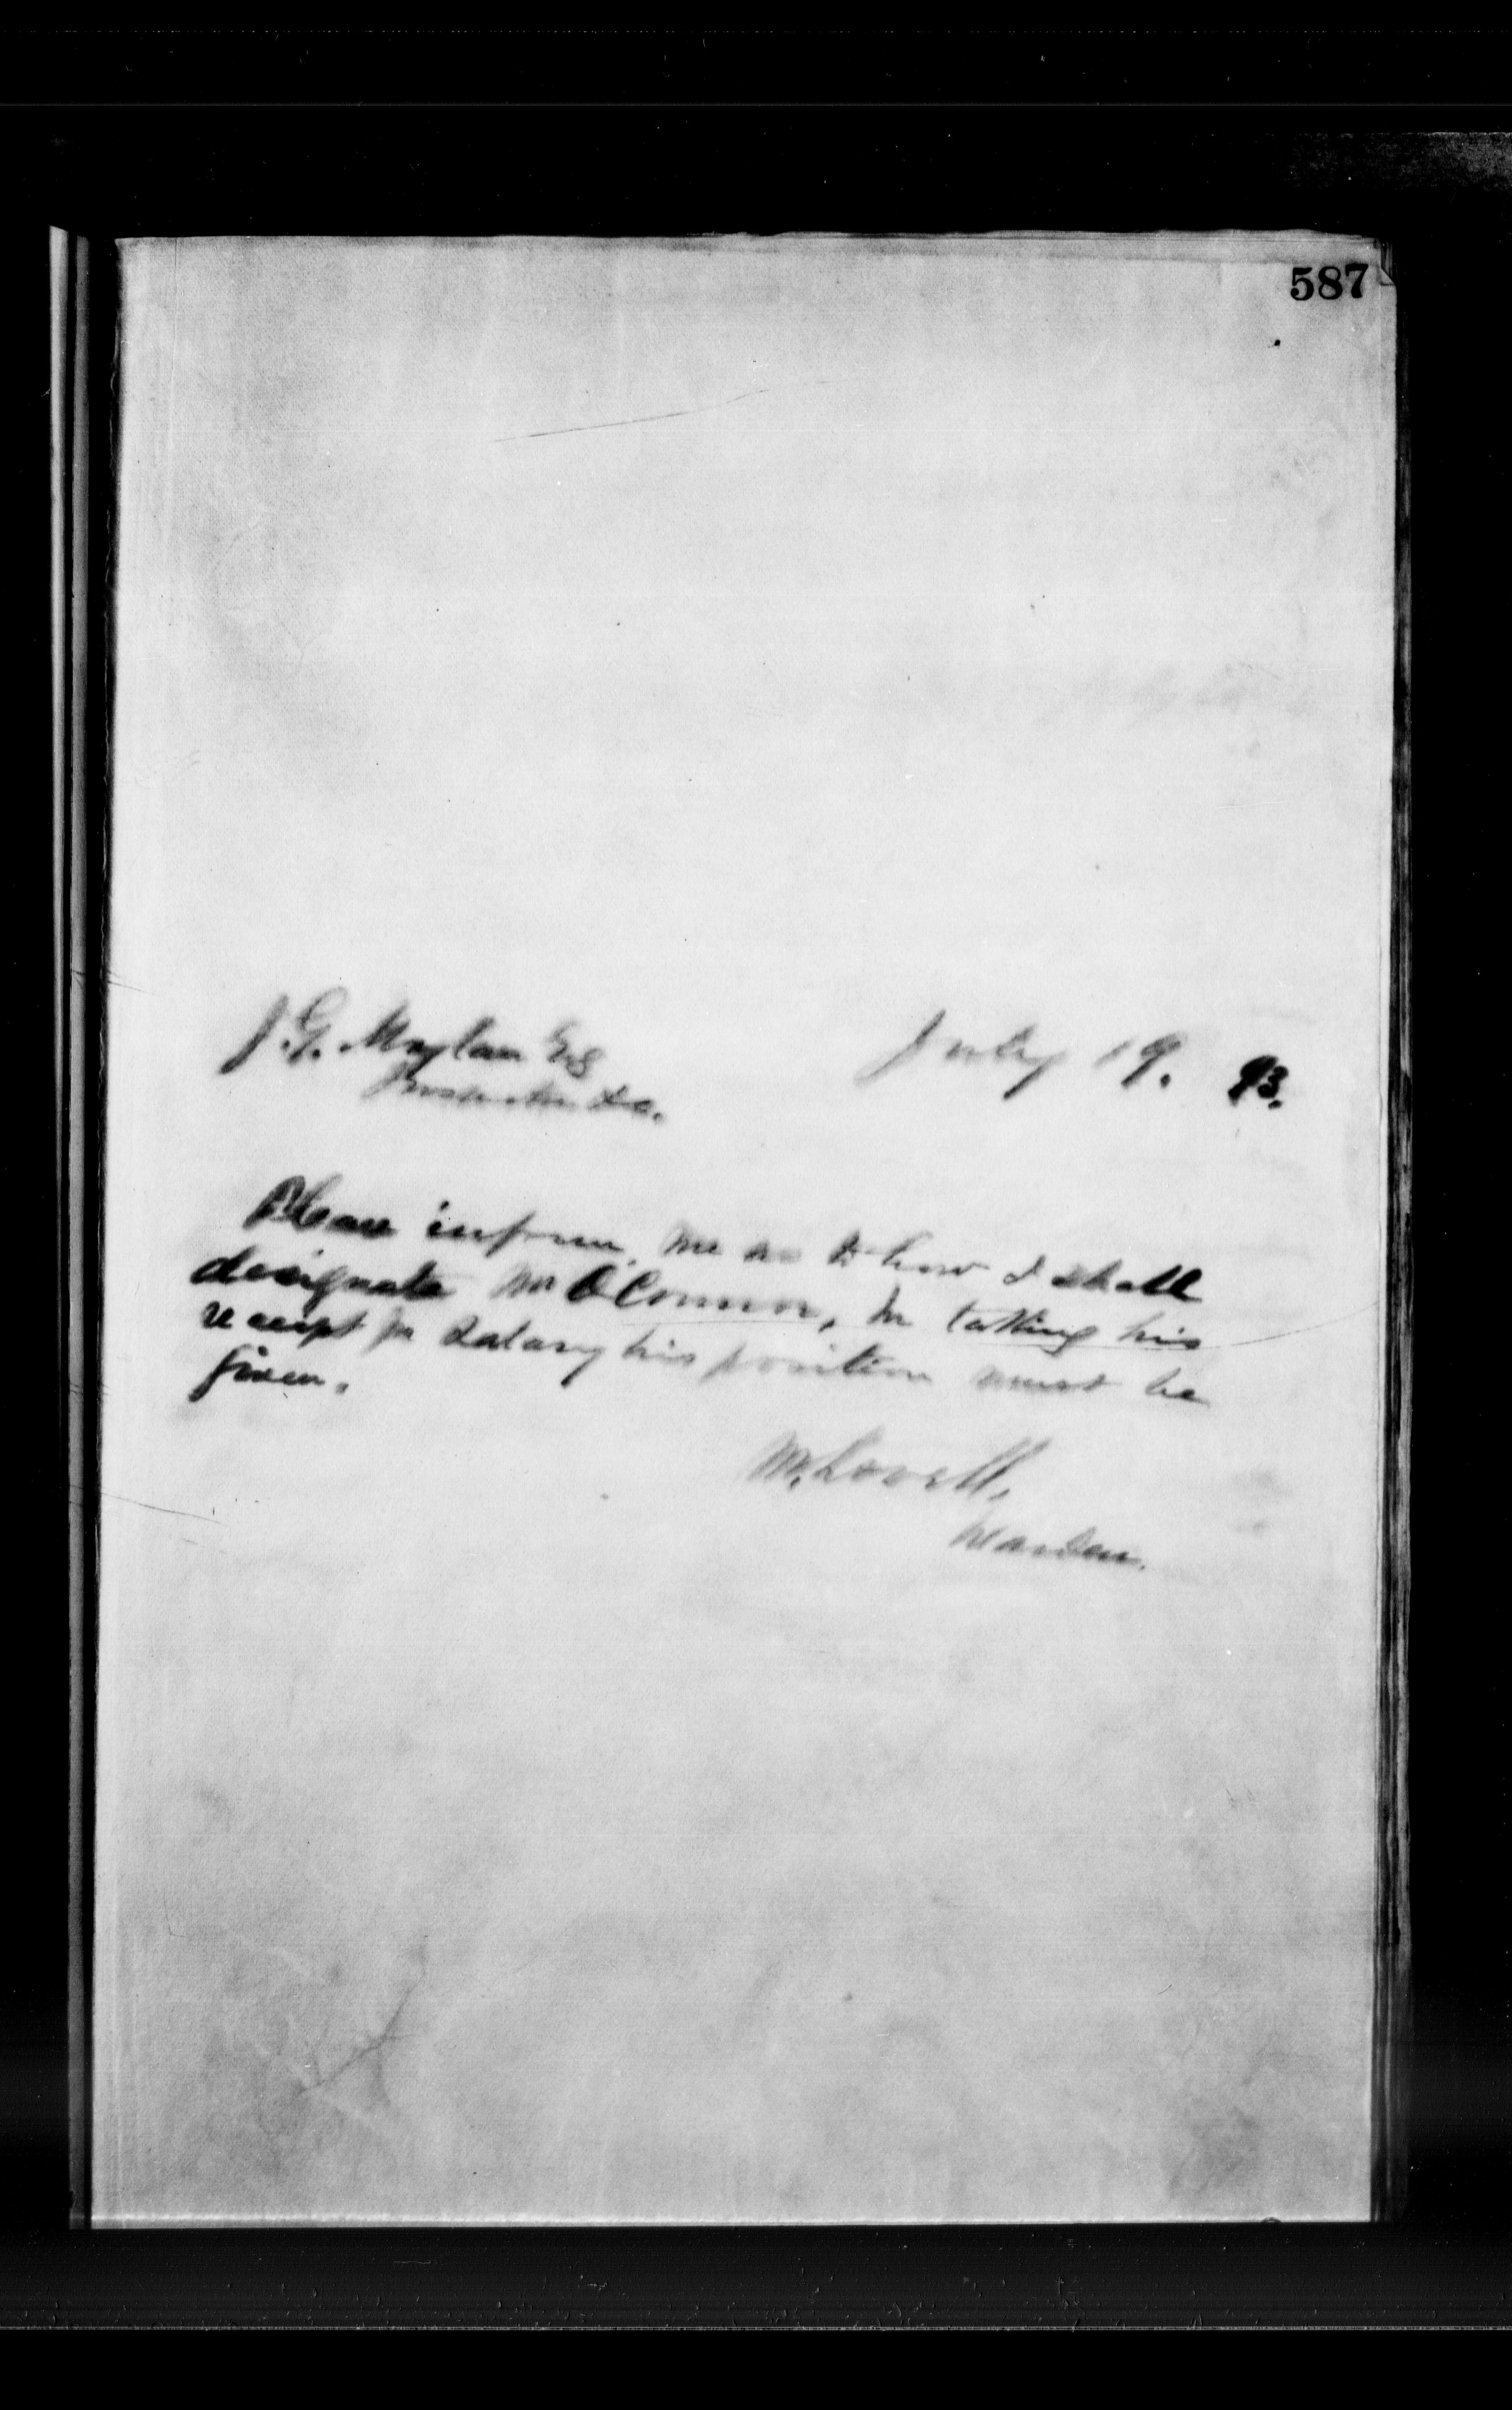 587
J.G. Moylan Esq
Inspector &c.
July 19. 93.
Please inform me as to how I shall
designate Mr O'Connor, in taking his
receipt for salary his position must be
given.
M. Lovell,
Warden.